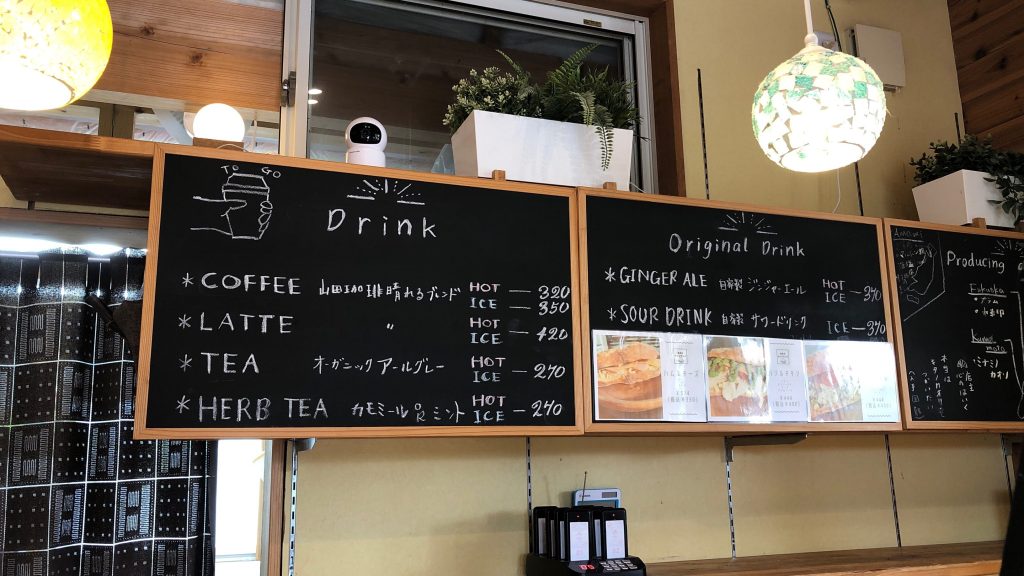 TO GO
Drink
*COFFEE 山田珈琲晴れるブレンド HOT — 320
ICE — 350
*LATTE 〃 HOT
ICE — 420
*TEA オーガニック アールグレー HOT
ICE — 270
*HERB TEA カモミール OR ミント HOT
ICE — 240
Original Drink
*GINGER ALE 自家製 ジンジャーエール HOT
ICE — 370
*SOUR DRINK 自家製 サワードリンク ICE — 370
ハム&チーズ
Producing
Fukuoka
ミナミノ
カオリ